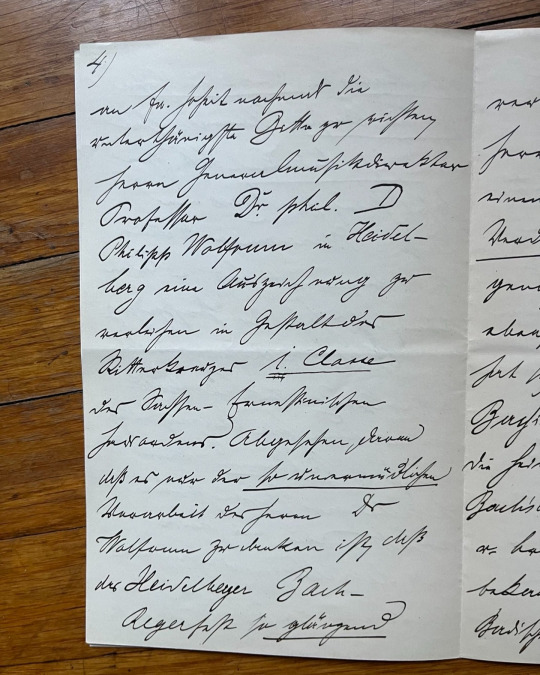 4)
an Ew. Hoheit nochmals die
unterthänigste Bitte zu richten,
Herrn Generalmusikdirektor
Professor Dr. phil. D
Philipp Wolfrum in Heidel-
berg eine Auszeichnung zu
verleihen in Gestalt des
Ritterkreuzes I. Classe
des Sachsen-Ernestinischen
Hausordens. Abgesehen, davon
daß es nur der so unermüdlichen
Vorarbeit des Herrn Dr
Wolfrum zu danken ist, daß
das Heidelberger Bach-
Regerfest so glänzend
ver
Herr
einen
gen
eben
hat
Bach
die Hei
Badisch
Badisch